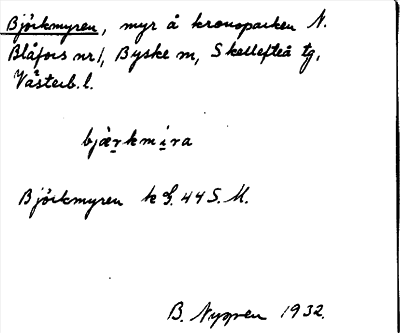 Björkmyren, myr å kronoparken N.
Blåfors nr 1, Byske m, Skellefteå tg,
Västerb. l.
bjærkmira
Björkmyren k G. 44 S. M.
B. Nyman 1932.